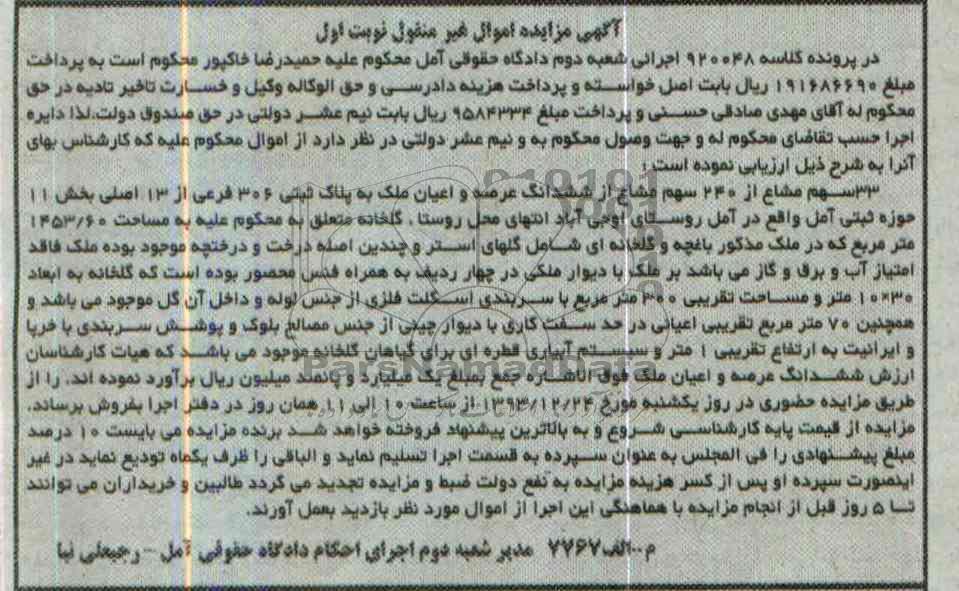 آگهی مزایده اموال غیر منقول نوبت اول
در پرونده کلاسه ۹۲۰۰۴۸ اجرائی شعبه دوم دادگاه حقوقی آمل محکوم علیه حمیدرضا خاکپور محکوم است به پرداخت
مبلغ ۱۹۱۶۸۶۶۹۰ ریال بابت اصل خواسته و پرداخت هزینه دادرسی و حق الوکاله وکیل و خسارت تاخیر تادیه در حق
محکوم له آقای مهدی صادقی حسنی و پرداخت مبلغ ۹۵۸۴۳۳۴ ریال بابت نیم عشر دولتی در حق صندوق دولت،لذا دایره
اجرا حسب تقاضای محکوم له و جهت وصول محکوم به و نیم عشر دولتی در نظر دارد از اموال محکوم علیه که کارشناس بهای
آنرا به شرح ذیل ارزیابی نموده است :
۳۳سهم مشاع از ۲۴۰ سهم مشاع از ششدانگ عرصه و اعیان ملک به پلاک ثبتی ۳۰۶ فرعی از ۱۳ اصلی بخش ۱۱
حوزه ثبتی آمل واقع در آمل روستای اوجی آباد انتهای محل روستا ، گلخانه متعلق به محکوم علیه به مساحت ۱۴۵۳/۶۰
متر مربع که در ملک مذکور باغچه و گلخانه ای شامل گلهای استر و چندین اصله درخت و درختچه موجود بوده ملک فاقد
امتیاز آب و برق و گاز می باشد بر ملک با دیوار ملکی در چهار ردیف به همراه فنس محصور بوده است که گلخانه به ابعاد
۳۰*۱۰ متر و مساحت تقریبی ۳۰۰ متر مربع با سربندی اسکلت فلزی از جنس لوله و داخل آن گل موجود می باشد و
همچنین ۷۰ متر مربع تقریبی اعیانی در حد سفت کاری با دیوار چینی از جنس مصالح بلوک و پوشش سربندی با خرپا
و ایرانیت به ارتفاع تقریبی ۱ متر و سیستم آبیاری قطره ای برای گیاهان گلخانه موجود می باشد که هیات کارشناسان
ارزش ششدانگ عرصه و اعیان ملک فوق الاشاره جمع بمبلغ یک میلیارد و پانصد میلیون ریال برآورد نموده اند. را از
طریق مزایده حضوری در روز یکشنبه مورخ ۱۳۹۳/۱۲/۲۴ از ساعت ۱۰ الی ۱۱ همان روز در دفتر اجرا بفروش برساند.
مزایده از قیمت پایه کارشناسی شروع و به بالاترین پیشنهاد فروخته خواهد شد برنده مزایده می بایست ۱۰ درصد
مبلغ پیشنهادی را فی المجلس به عنوان سپرده به قسمت اجرا تسلیم نماید و الباقی را ظرف یکماه تودیع نماید در غیر
اینصورت سپرده او پس از کسر هزینه مزایده به نفع دولت ضبط و مزایده تجدید می گردد طالبین و خریداران می توانند
تا ۵ روز قبل از انجام مزایده با هماهنگی این اجرا از اموال مورد نظر بازدید بعمل آورند.
م-الف۷۷۶۷ مدیر شعبه دوم اجرای احکام دادگاه حقوقی آمل - رجبعلی نیا
ParsNamadData